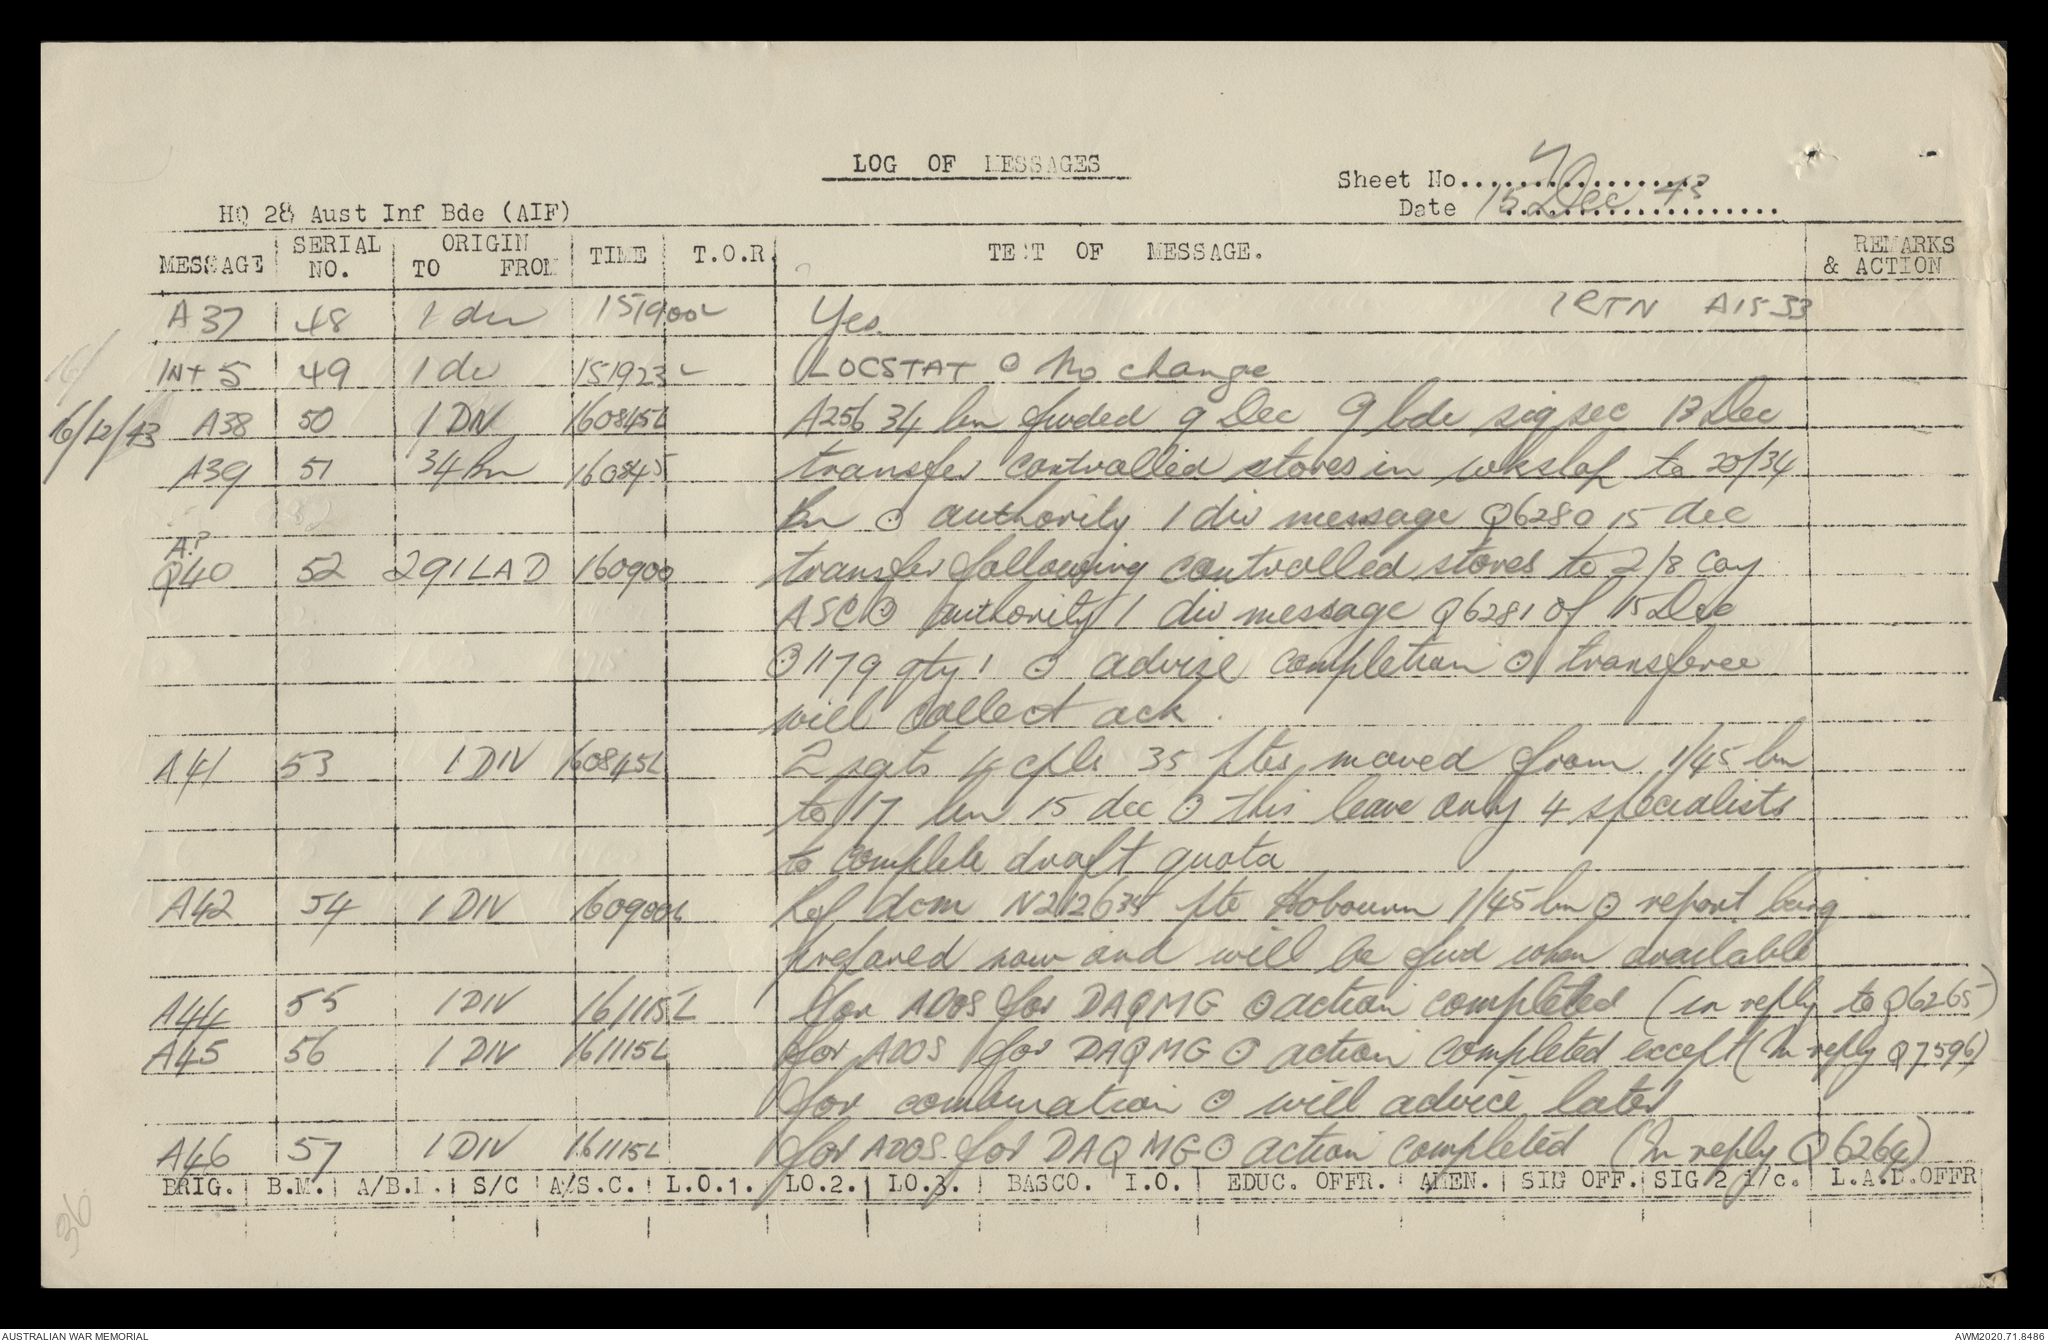 LOG OF MESSAGES
Sheet No.................. 7
Date 15 Dec 43
HQ 28 Aust Inf Bde (AIF)
MESSAGE SERIAL NO. ORIGIN TO FROM TIME T.O.R. TEXT OF MESSAGE. REMARKS & ACTION
A37 48 1 div 151900L Yes. A1533
INT 5 49 1 div 151923L LOCSTAT ⊙ No change
16/12/43 A38 50 1 DIV 160845L A256 34 bn fwded 9 Dec 9 bde sig sec 13 Dec
A39 51 34 Bn 160845 transfer controlled stores in wkshop to 20/34
Bn ⊙ authority 1 div message Q6280 15 dec
Q40 52 291 LAD 160900 transfer following controlled stores to 2/8 Coy
ASC ⊙ authority 1 div message Q6281 of 15 Dec
⊙ 1179 qty 1 ⊙ advise completion ⊙ transferee
will collect ack.
A41 53 1 DIV 160845L 2 sgts 4 cpls 35 ptes moved from 1/45 bn
to 17 bn 15 dec ⊙ this leave only 4 specialists
to complete draft quota
A42 54 1 DIV 160900L Ref dcm N212635 pte Hobourn 1/45 bn ⊙ report being
prepared now and will be fwd when available
A44 55 1 DIV 161115L for ADOS for DAQMG ⊙ action completed (in reply to Q6265)
A45 56 1 DIV 161115L for ADOS for DAQMG ⊙ action completed except (In reply Q7596)
for combination ⊙ will advice later
A46 57 1 DIV 161115L for ADOS for DAQMG ⊙ action completed (In reply Q6264)
BRIG. B.M. A/B.M. S/C A/S.C. L.O.1. LO.2. LO.3. BASCO. I.O. EDUC. OFFR. AMEN. SIG OFF. SIG 2 i/c. L.A.D.OFFR
36
AUSTRALIAN WAR MEMORIAL
AWM2020.71.8486